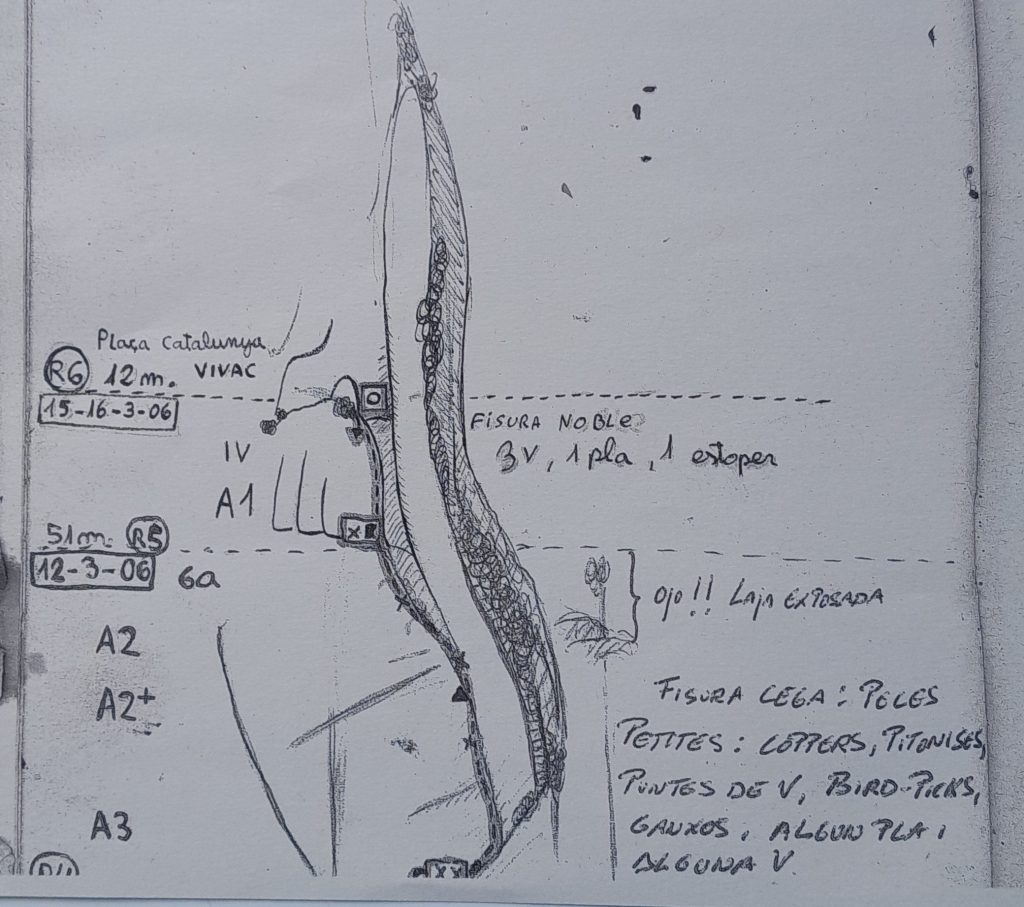 Plaça Catalunya
R6 12 m. VIVAC
15-16-3-06
FISURA NOBLE
3V, 1 pla, 1 estoper
IV
A1
51m. R5
12-3-06 6a
Ojo!! LAJA EXPOSADA
A2
A2+
A3
FISURA CEGA: PECES
PETITES: COPPERS, PITONISES,
PUNTES DE V, BIRD-PICKS,
GANXOS, ALGUN PLA I
ALGUNA V.
X
XX